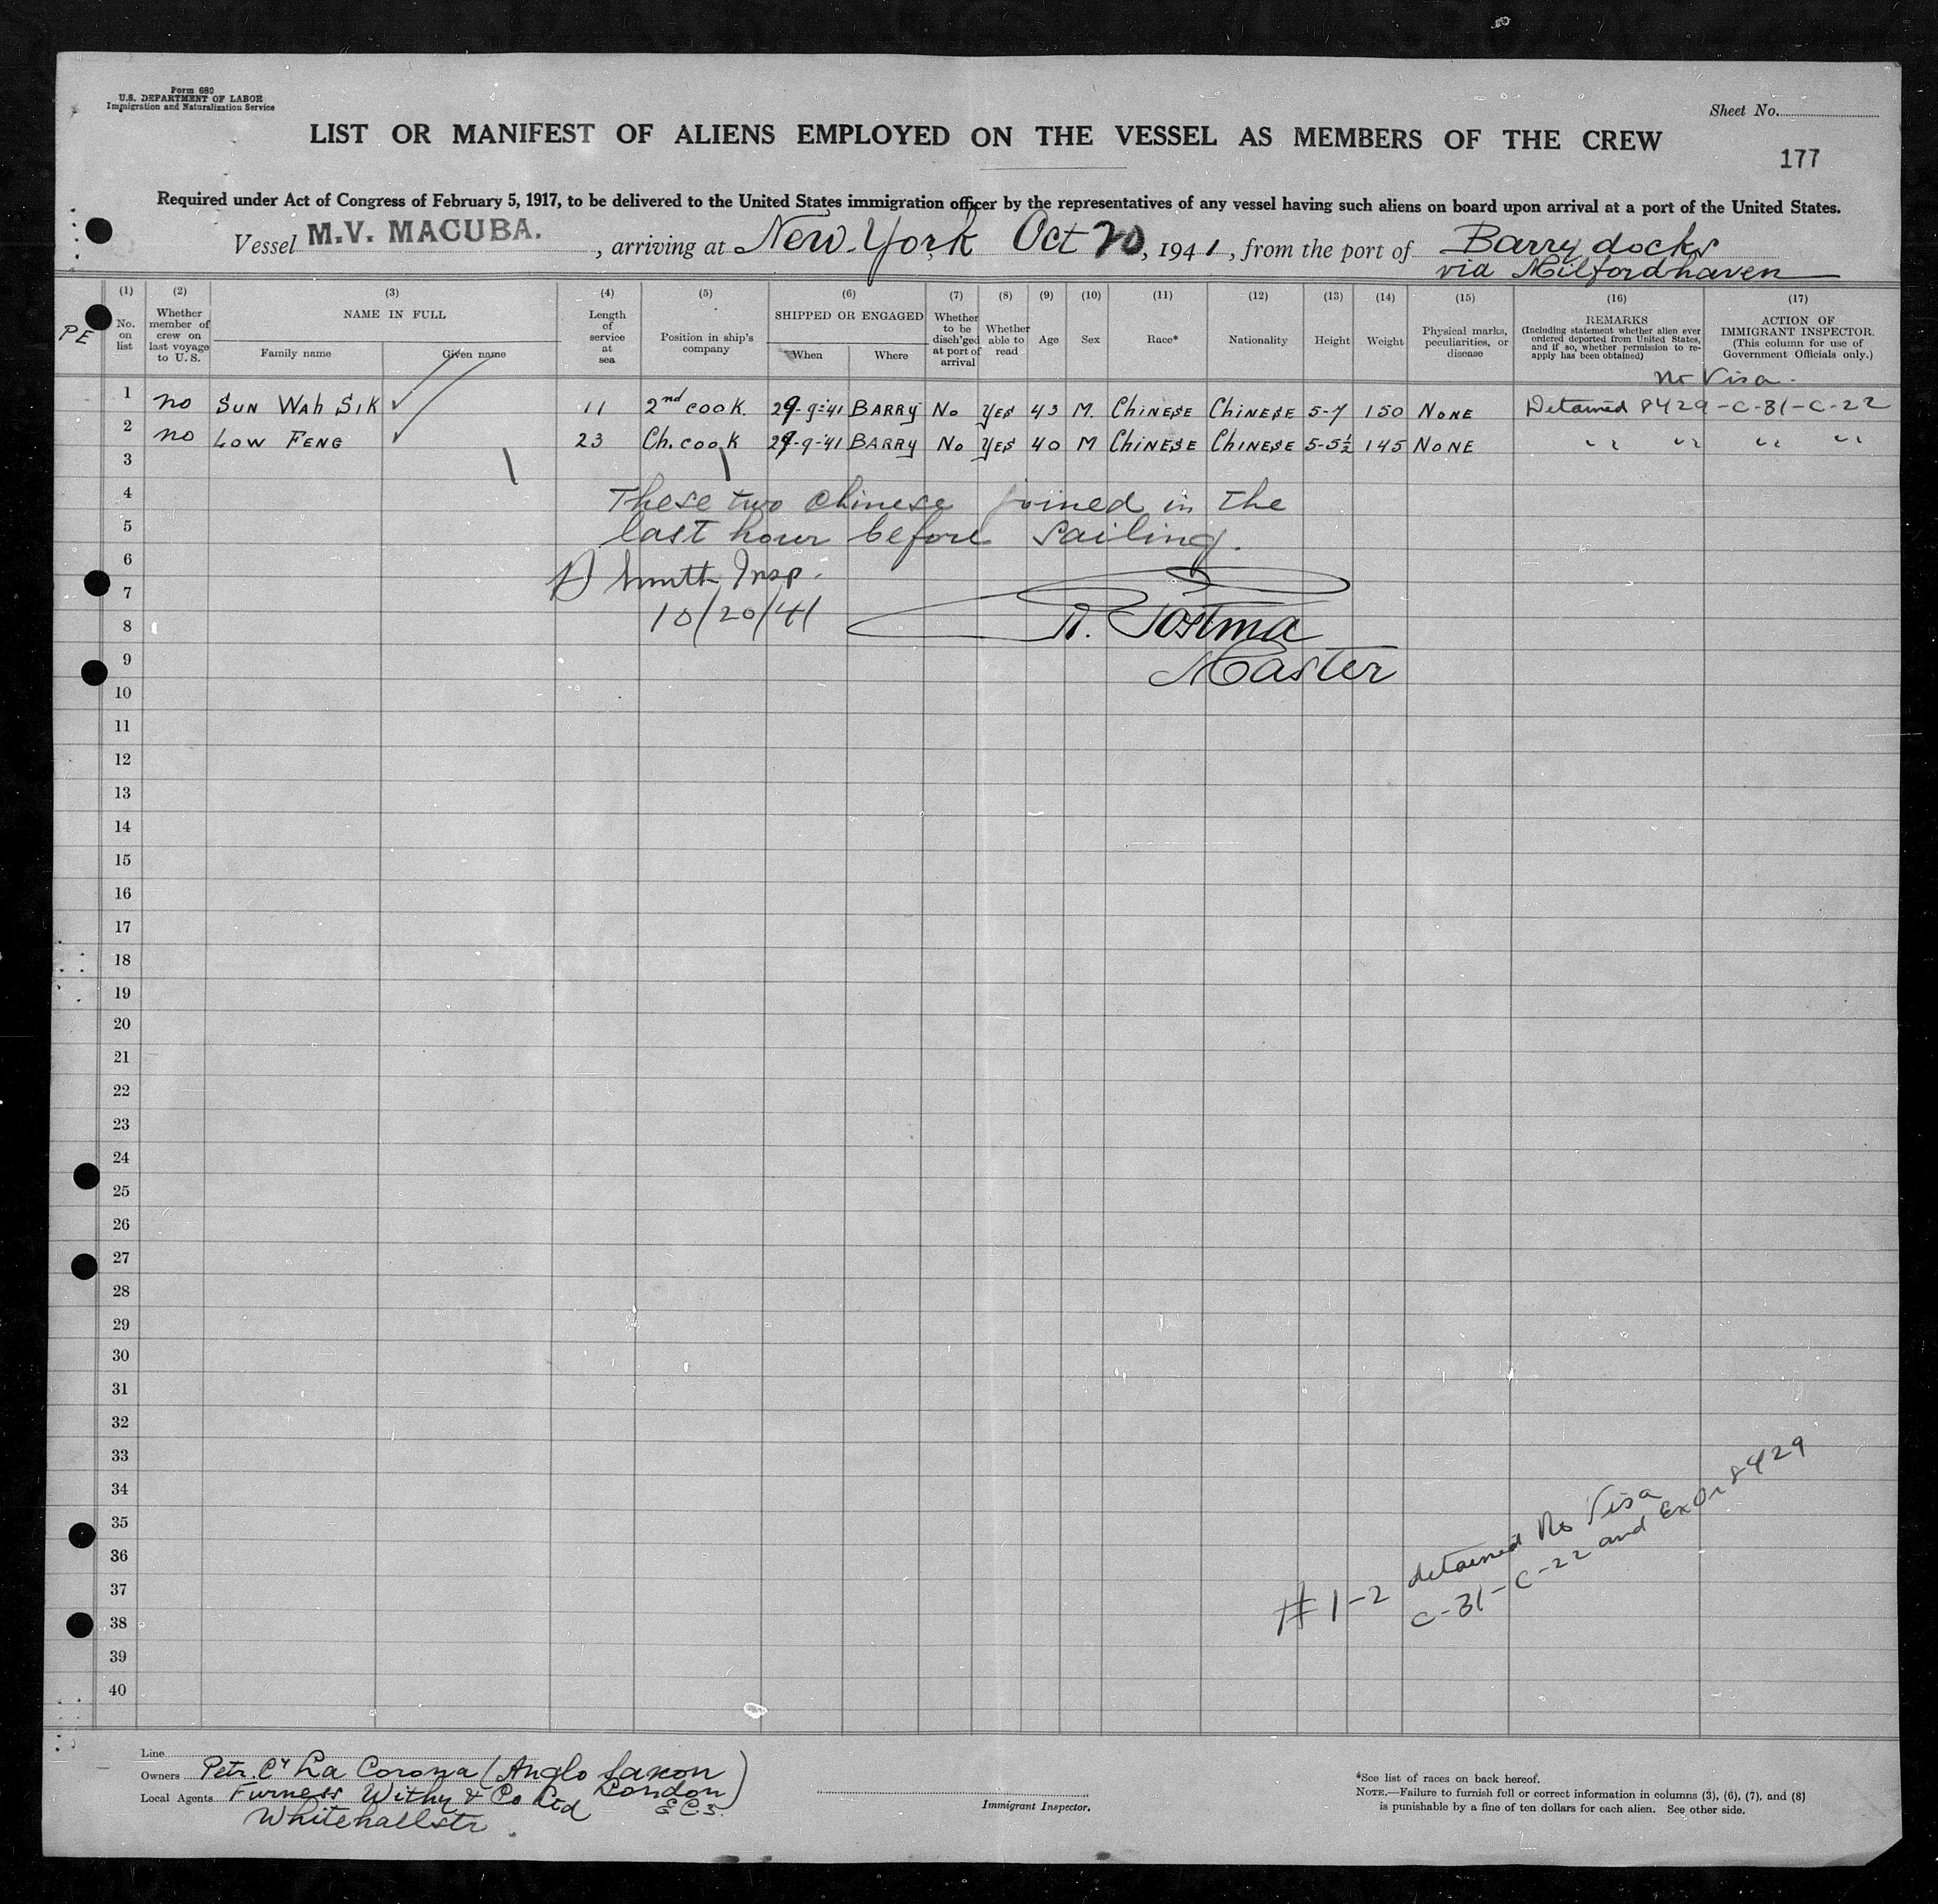 Form 680
U.S. DEPARTMENT OF LABOR
Immigration and Naturalization Service
Sheet No.
LIST OR MANIFEST OF ALIENS EMPLOYED ON THE VESSEL AS MEMBERS OF THE CREW
177
Required under Act of Congress of February 5, 1917, to be delivered to the United States immigration officer by the representatives of any vessel having such aliens on board upon arrival at a port of the United States.
Vessel M.V. MACUBA. , arriving at New York Oct 20, 1941, from the port of Barry docks
via Milfordhaven
PE
(1) (2) (3) (4) (5) (6) (7) (8) (9) (10) (11) (12) (13) (14) (15) (16) (17)
No. on list
Whether member of crew on last voyage to U. S.
NAME IN FULL
Family name Given name
Length of service at sea
Position in ship's company
SHIPPED OR ENGAGED
When Where
Whether to be disch'ged at port of arrival
Whether able to read
Age
Sex
Race*
Nationality
Height
Weight
Physical marks, peculiarities, or disease
REMARKS
(Including statement whether alien ever ordered deported from United States, and if so, whether permission to re-apply has been obtained)
ACTION OF IMMIGRANT INSPECTOR.
(This column for use of Government Officials only.)
no Visa.
1 no SUN WAH SIK 11 2nd cook. 29-9-'41 BARRY No YES 43 M. CHINESE CHINESE 5-7 150 NONE Detained 8429-C-31-C-22
2 no LOW FENG 23 Ch. cook 29-9-'41 BARRY No YES 40 M CHINESE CHINESE 5-5½ 145 NONE " " " "
3
4 These two chinese joined in the
5 last hour before sailing.
6
7 Smith Insp.
8 10/20/41 R. Postma
9 Master
10
11
12
13
14
15
16
17
18
19
20
21
22
23
24
25
26
27
28
29
30
31
32
33
34
35
36
37
38
39
40
#1-2 detained No Visa
C-31-C-22 and Ex Or 8429
Line
Owners Petr. Cy La Corona (Anglo Saxon
London)
E C 3.
Local Agents Furness Withy & Co Ltd
Whitehallstr.
Immigrant Inspector.
*See list of races on back hereof.
NOTE.—Failure to furnish full or correct information in columns (3), (6), (7), and (8)
is punishable by a fine of ten dollars for each alien. See other side.